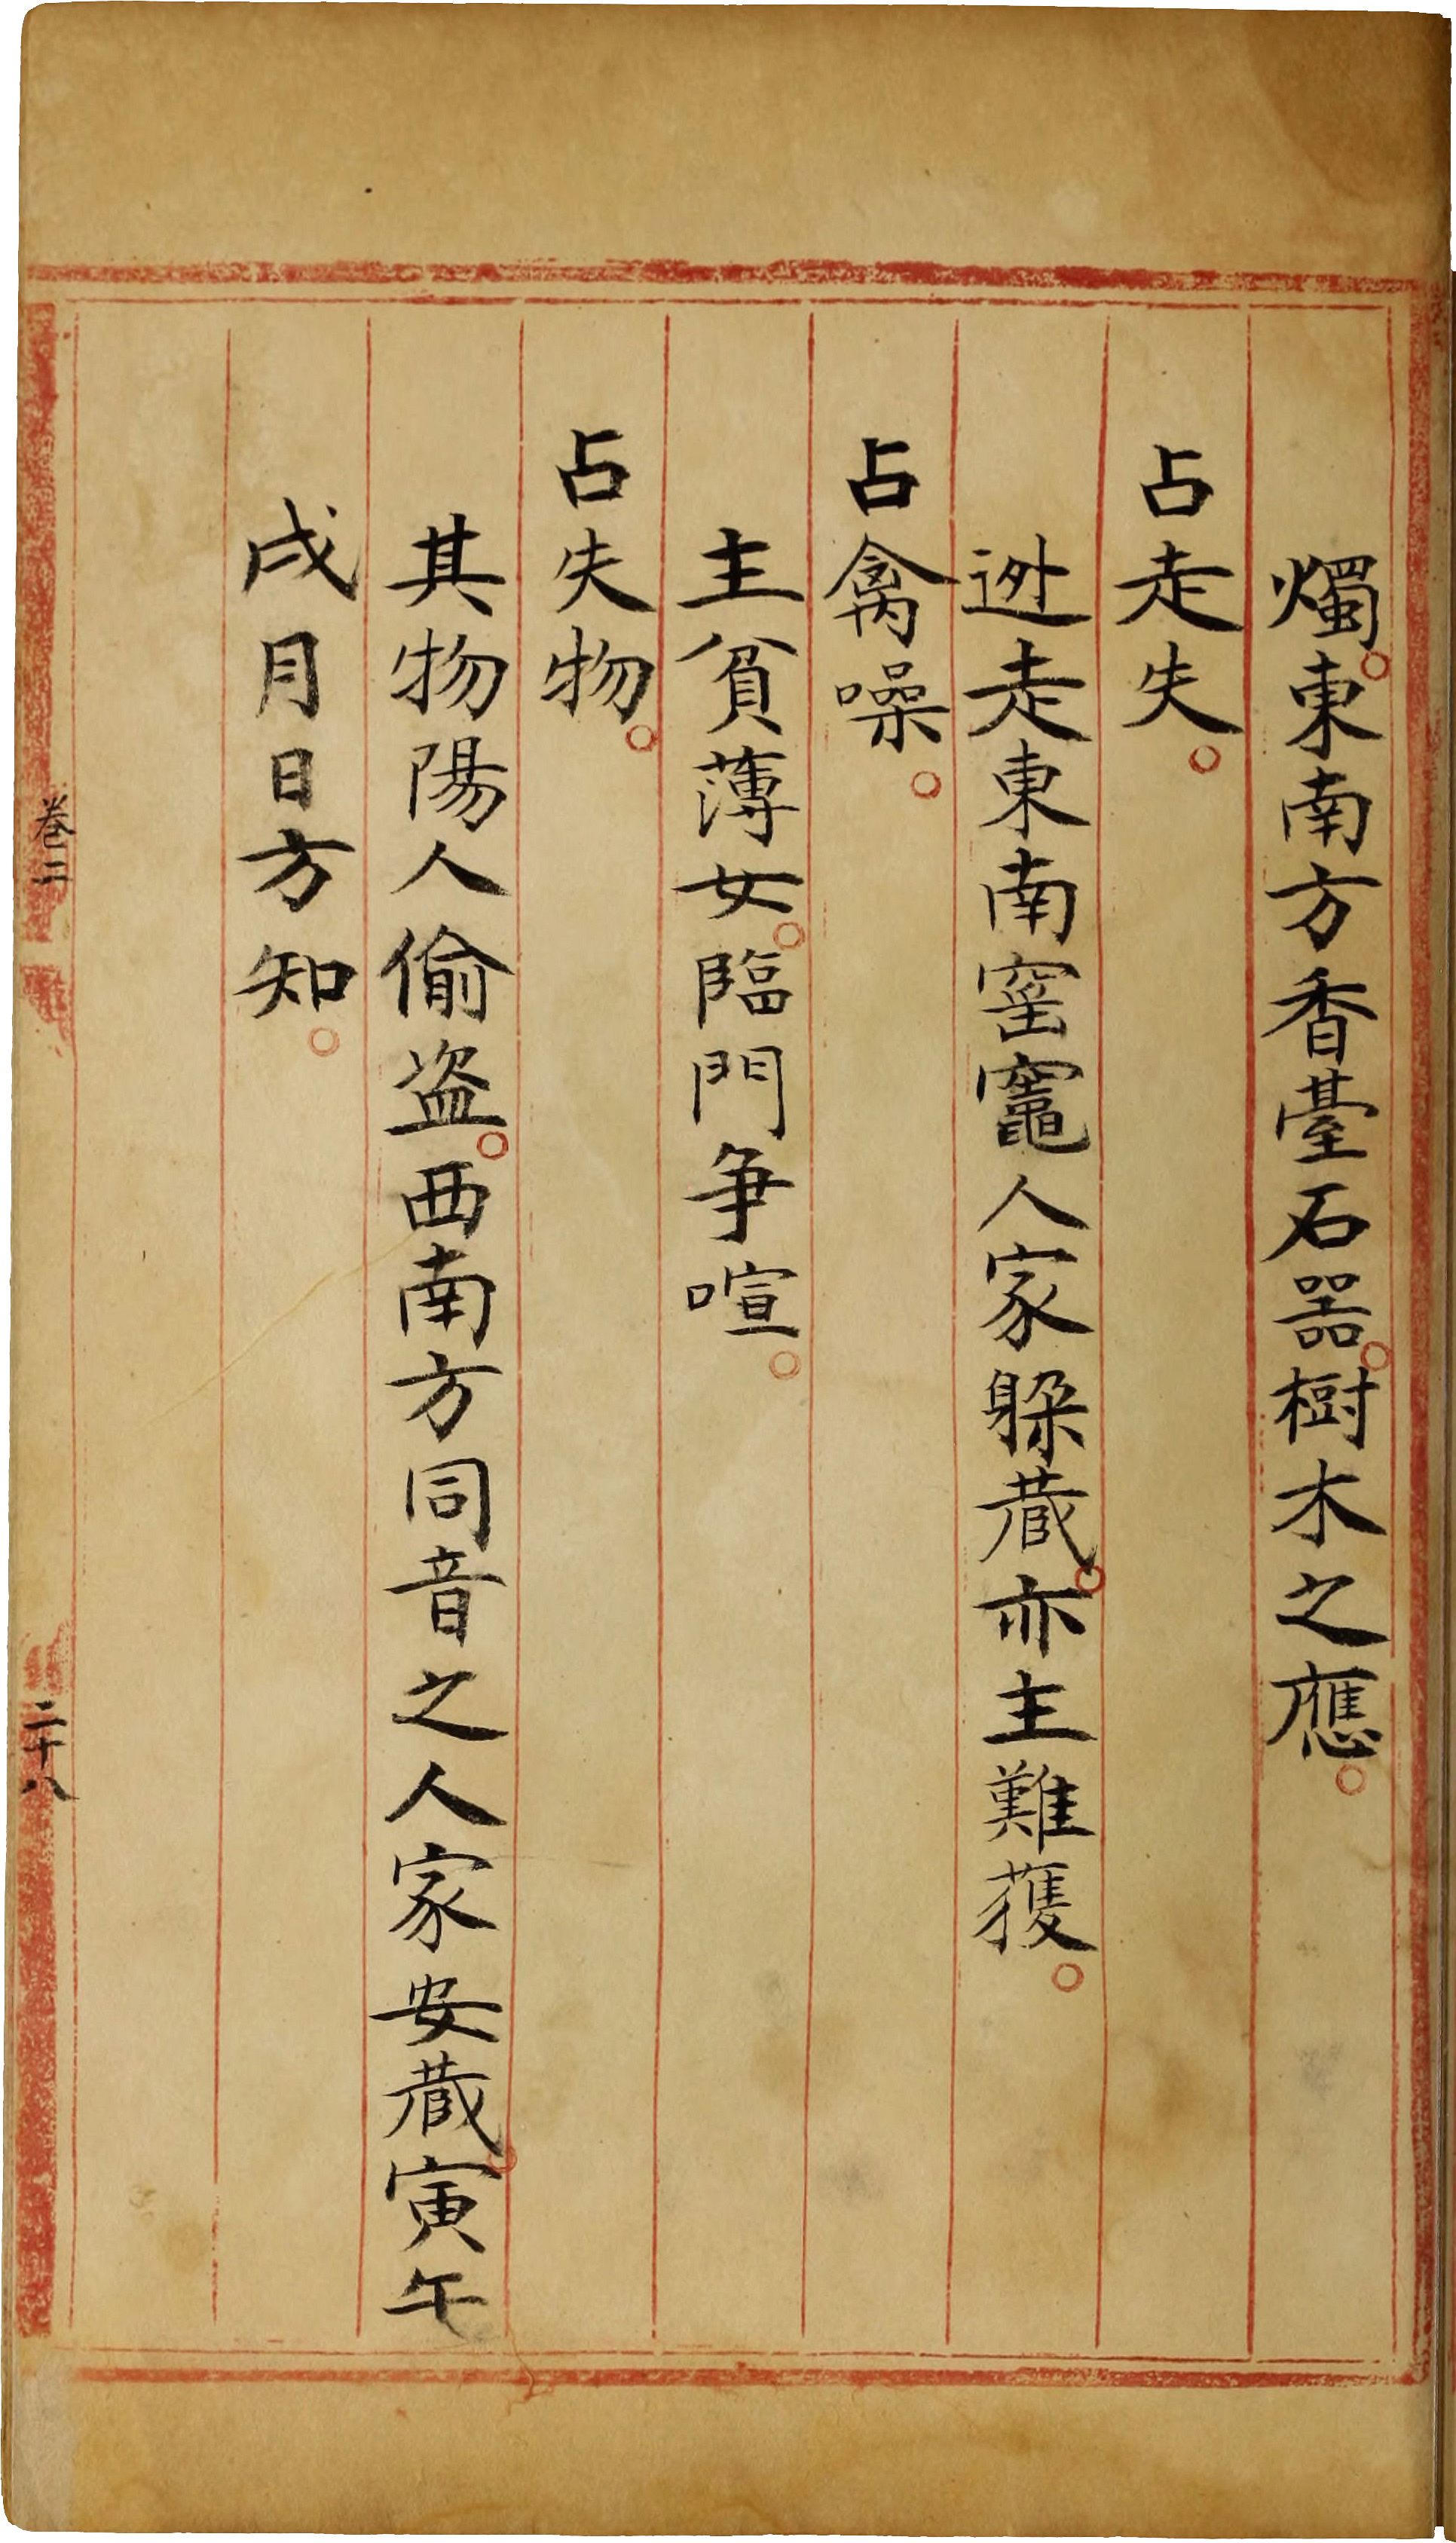 燭。東南方香臺石器。樹木之應。
占走失。
迯走東南窰竈人家躲藏。亦主難獲。
占禽噪。
主貧薄女。臨門爭喧。
占失物。
其物陽人偷盗。西南方同音之人家安藏。寅午
戌月日方知。
卷二
二十八